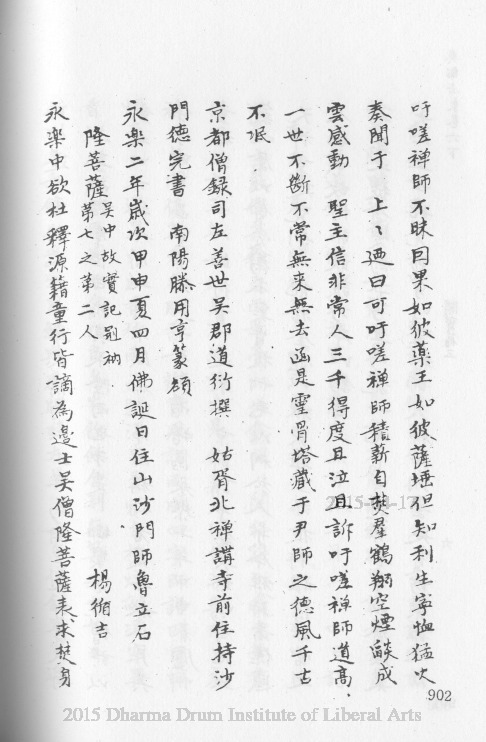 吁嗟禪師不昧因果如彼藥王如彼薩埵但知利生寧恤猛火
奏聞于 上〻迺曰可吁嗟禪師積薪自焚羣鶴翔空煙燄成
雲感動 聖主信非常人三千得度且泣且訴吁嗟禪師道高
一世不斷不常無來無去函是靈骨塔藏于尹師之德風千古
不泯
京都僧錄司左善世吳郡道衍撰 姑胥北禪講寺前住持沙
門德完書 南陽滕用亨篆額
永樂二年歲次甲申夏四月佛誕日住山沙門師魯立石
隆菩薩 吳中故實記別衲
第七之第二人 楊循吉
永樂中欲杜釋源籍童行皆謫為邊士吳僧隆菩薩表求焚身
902
2015-08-17
2015 Dharma Drum Institute of Liberal Arts